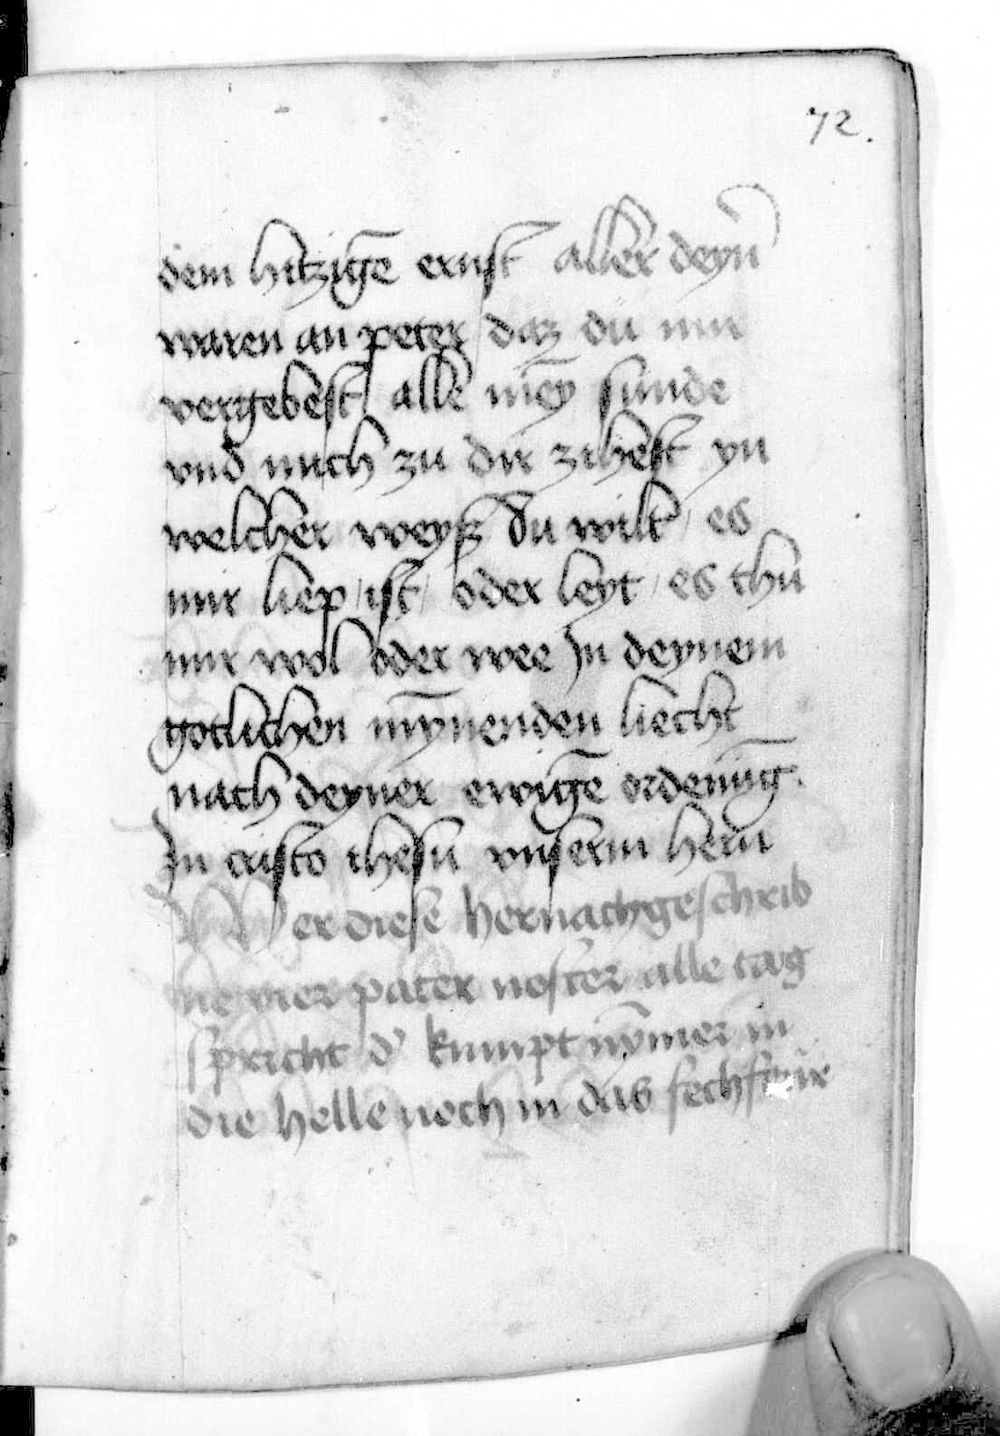 72.
dem hitzigē ernst aller deyn̄
waren an peter daz du mir
vergebest / alle mey̅ sunde
vnd mich zu dir zihest yn
welcher weysz du wilt / es
mir liep / ist / oder leyt / es thu
mir wol oder wee In deynem
gotlichen my̅nenden liecht
nach deyner ewigē ordenu̅g.
In cristo ihesu vnserm hern̄
Wer diese hernachgeschrib
ne vier pater noster alle tag
spricht d' kumpt ny̅mer in
die helle noch in das fechfeur